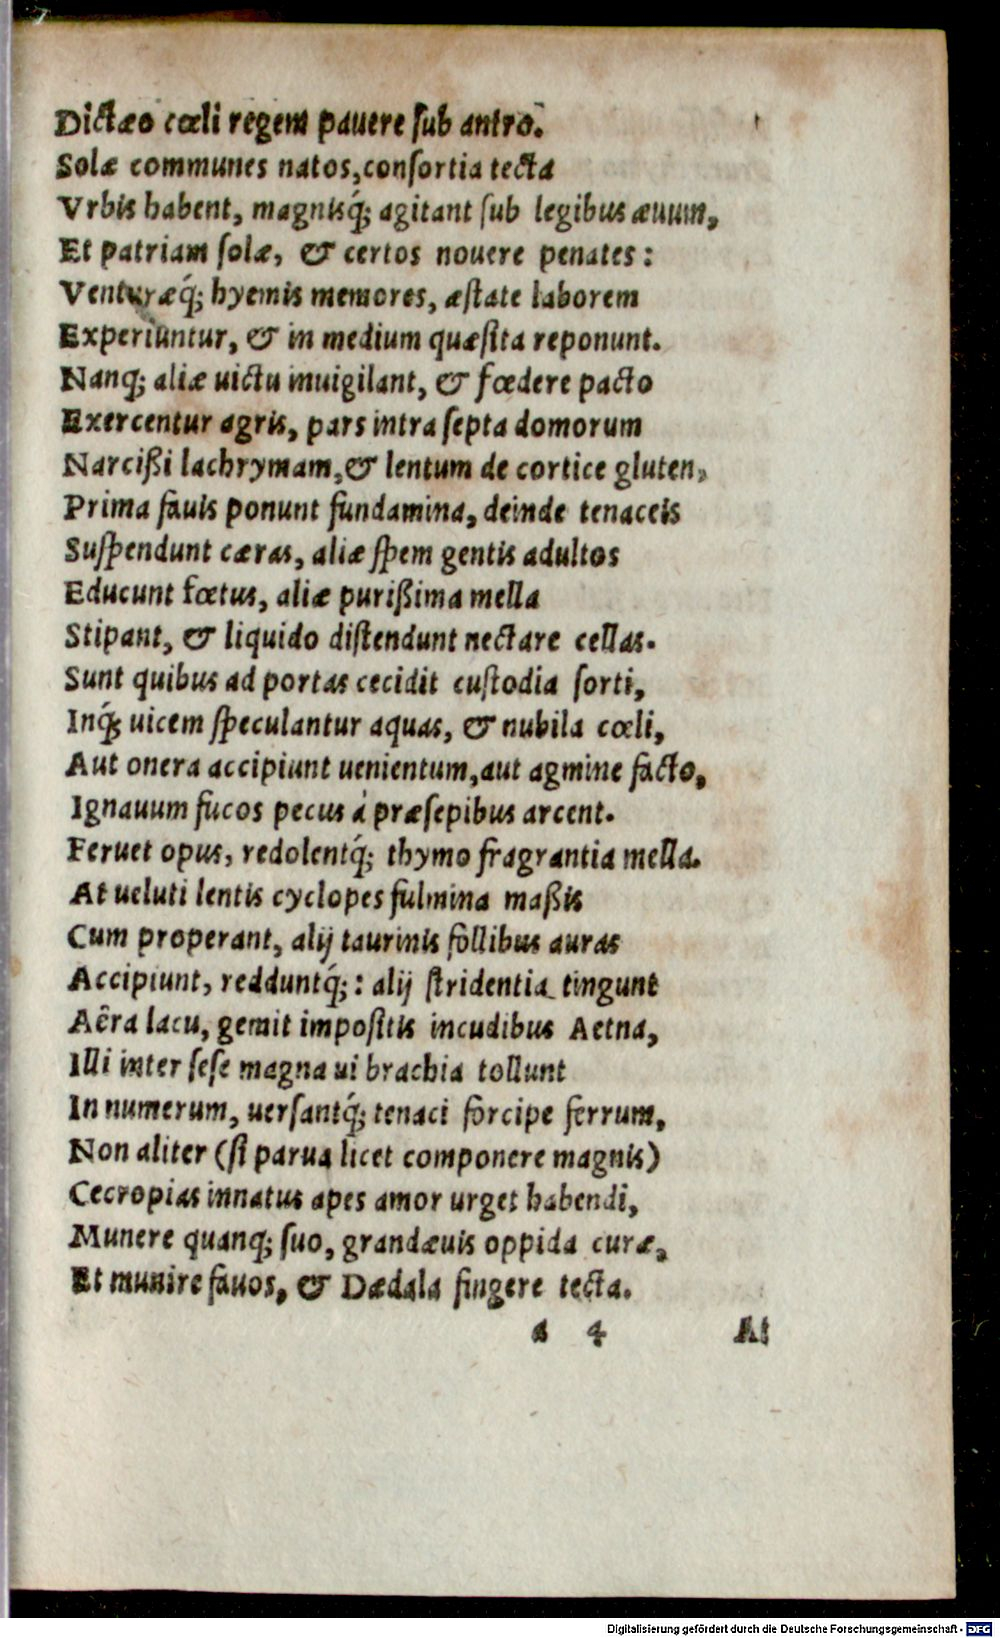 Dictæo cœli regem pauere sub antro.
Solæ communes natos, consortia tecta
Vrbis habent, magnisq́; agitant sub legibus æuum,
Et patriam solæ, & certos nouere penates:
Venturæq́; hyemis memores, æstate laborem
Experiuntur, & in medium quæsita reponunt.
Nanq; aliæ uictu inuigilant, & fœdere pacto
Exercentur agris, pars intra septa domorum
Narcißi lachrymam, & lentum de cortice gluten,
Prima fauis ponunt fundamina, deinde tenaceis
Suspendunt cæras, aliæ spem gentis adultos
Educunt fœtus, aliæ purißima mella
Stipant, & liquido distendunt nectare cellas.
Sunt quibus ad portas cecidit custodia sorti,
Inq́; uicem speculantur aquas, & nubila cœli,
Aut onera accipiunt uenientum, aut agmine facto,
Ignauum fucos pecus à præsepibus arcent.
Feruet opus, redolentq́; thymo fragrantia mella.
At ueluti lentis cyclopes fulmina maßis
Cum properant, alij taurinis follibus auras
Accipiunt, redduntq́;: alij stridentia tingunt
Aêra lacu, gemit impositis incudibus Aetna,
Illi inter sese magna ui brachia tollunt
In numerum, uersantq́; tenaci forcipe ferrum,
Non aliter (si parua licet componere magnis)
Cecropias innatus apes amor urget habendi,
Munere quanq; suo, grandæuis oppida curæ,
Et munire fauos, & Dædala fingere tecta.
a 4 At
Digitalisierung gefördert durch die Deutsche Forschungsgemeinschaft - DFG